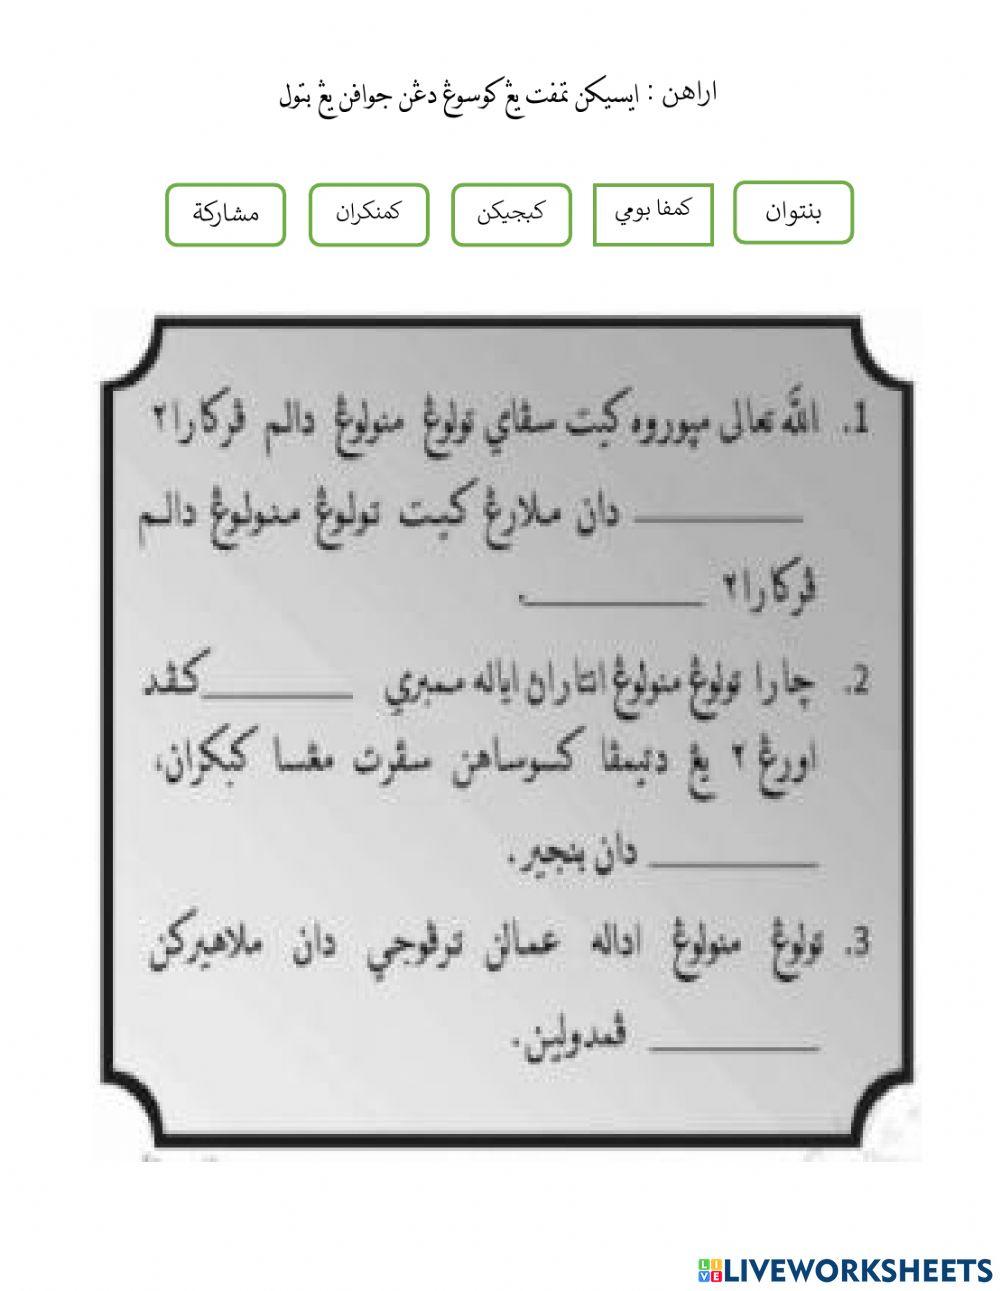 اراهن : ايسيكن تمفت يڠ كوسوڠ دڠن جوافن يڠ بتول
بنتوان
كمفا بومي
كبجيكن
كمنكران
مشاركة
1. الله تعالى مپوروه كيت سڤاي تولوڠ منولوڠ دالم ڤركارا٢
________ دان ملارڠ كيت تولوڠ منولوڠ دالم
ڤركارا٢ ________.
2. چارا تولوڠ منولوڠ انتاراڽ اياله ممبري ________كڤد
اورڠ ٢ يڠ دتيمڤا كسوساهن سڤرت مڠسا كبكران،
________ دان بنجير.
3. تولوڠ منولوڠ اداله عمالن ترڤوجي دان ملاهيركن
________ ڤمدولين.
LIVEWORKSHEETS